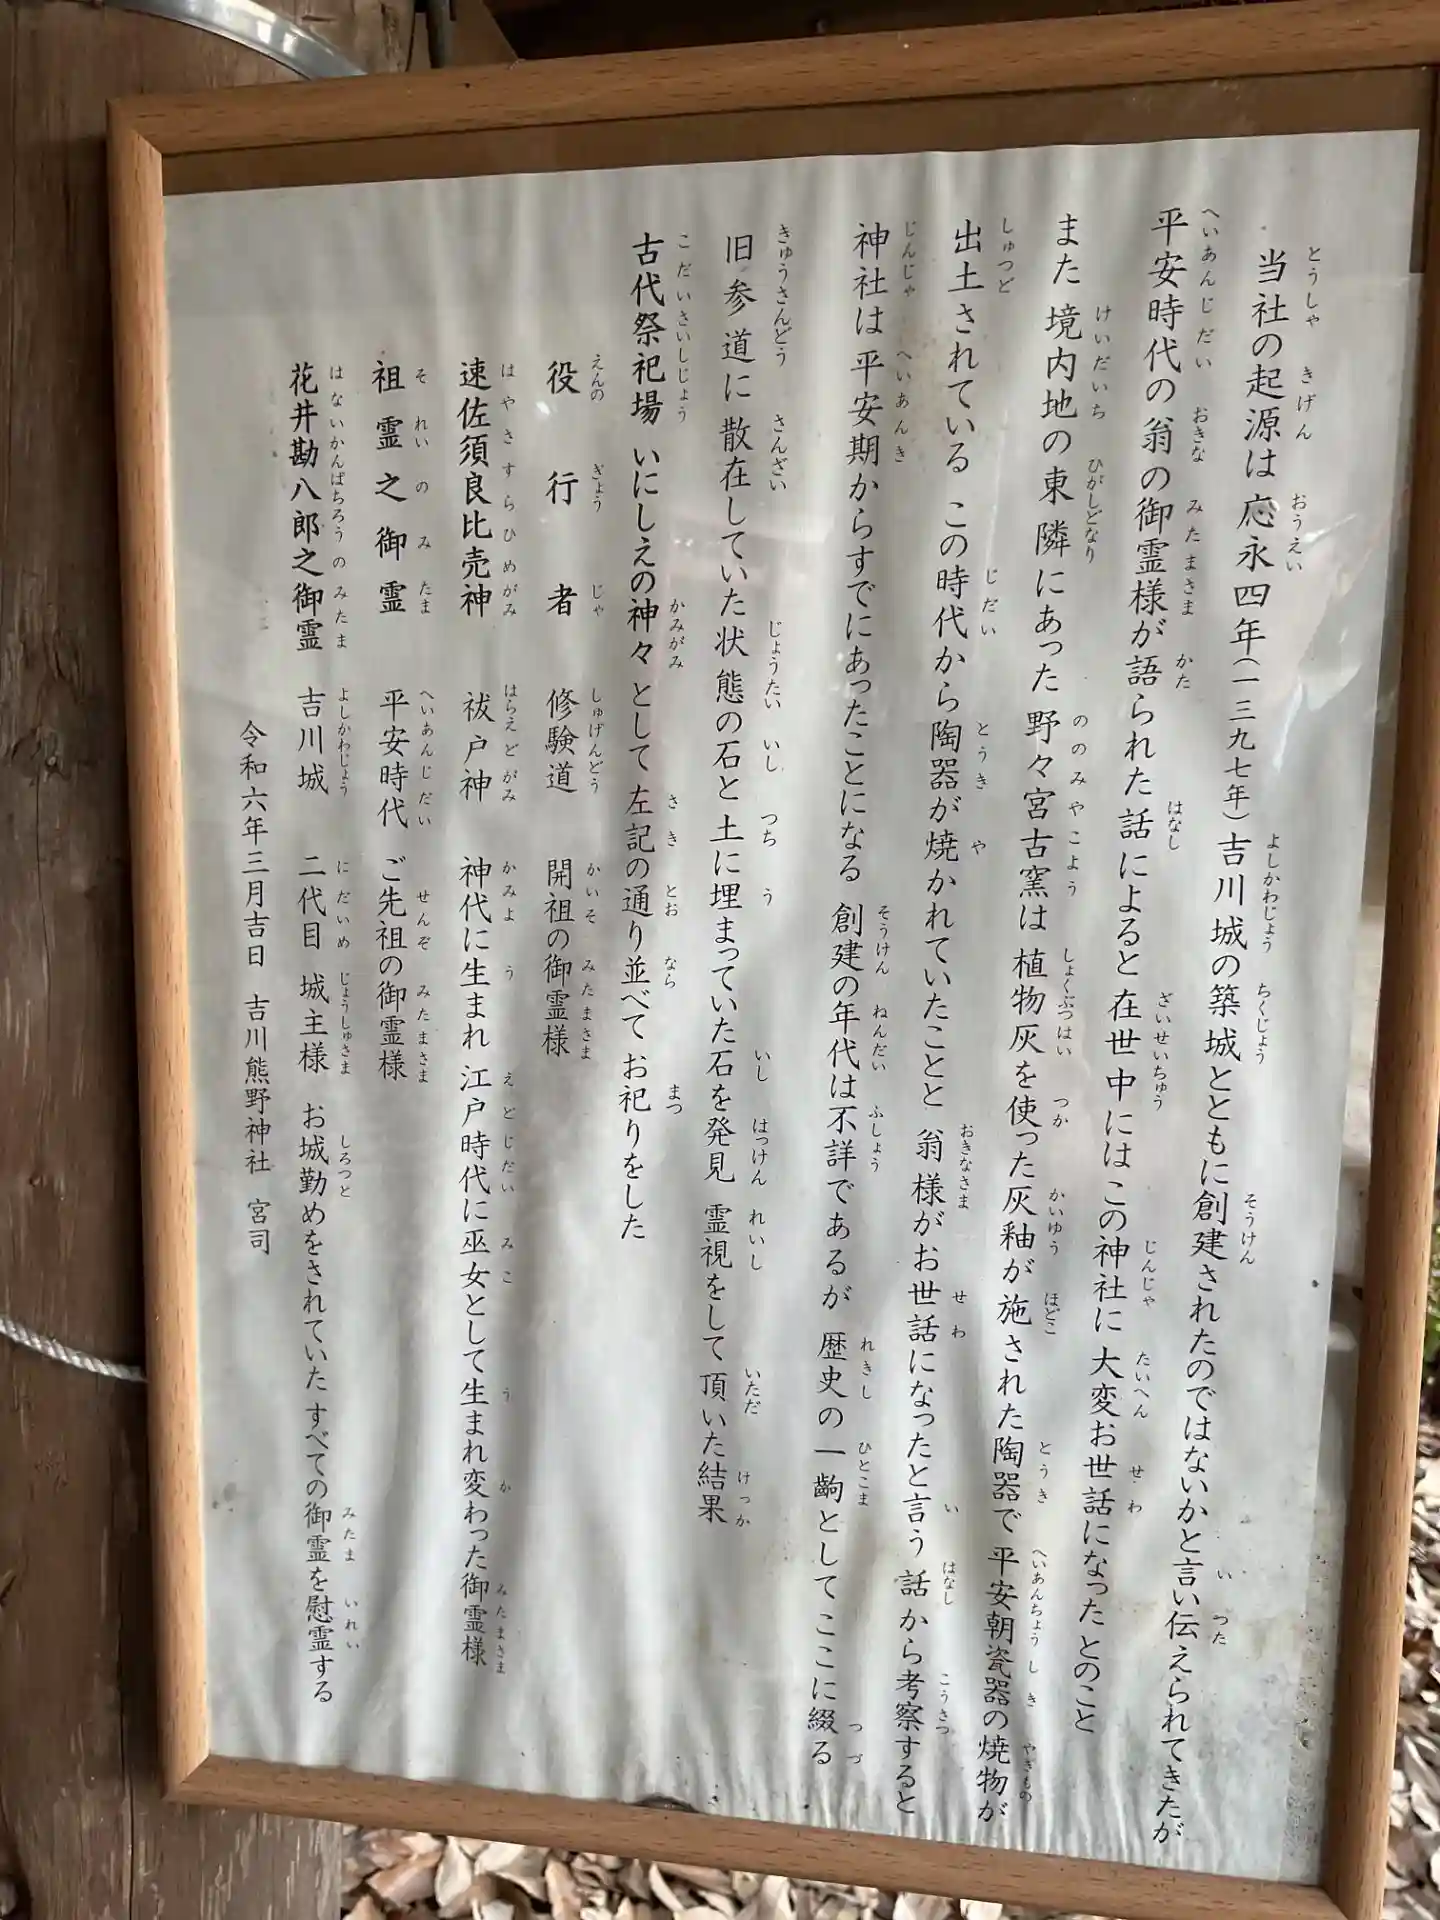 当社の起源は応永四年(一三九七年)吉川城の築城とともに創建されたのではないかと言い伝えられてきたが
平安時代の翁の御霊様が語られた話によると在世中にはこの神社に大変お世話になったとのこと
また境内地の東隣にあった野々宮古窯は植物灰を使った灰釉が施された陶器で平安朝瓷器の焼物が
出土されているこの時代から陶器が焼かれていたことと翁様がお世話になったと言う話から考察すると
神社は平安期からすでにあったことになる創建の年代は不詳であるが歴史の一齣としてここに綴る
旧参道に散在していた状態の石と土に埋まっていた石を発見霊視をして頂いた結果
古代祭祀場いにしえの神々として左記の通り並べてお祀りをした
役行者 修験道 開祖の御霊様
速佐須良比売神 祓戸神 神代に生まれ江戸時代に巫女として生まれ変わった御霊様
祖霊之御霊 平安時代 ご先祖の御霊様
花井勘八郎之御霊 吉川城 二代目城主様 お城勤めをされていたすべての御霊を慰霊する
令和六年三月吉日 吉川熊野神社 宮司